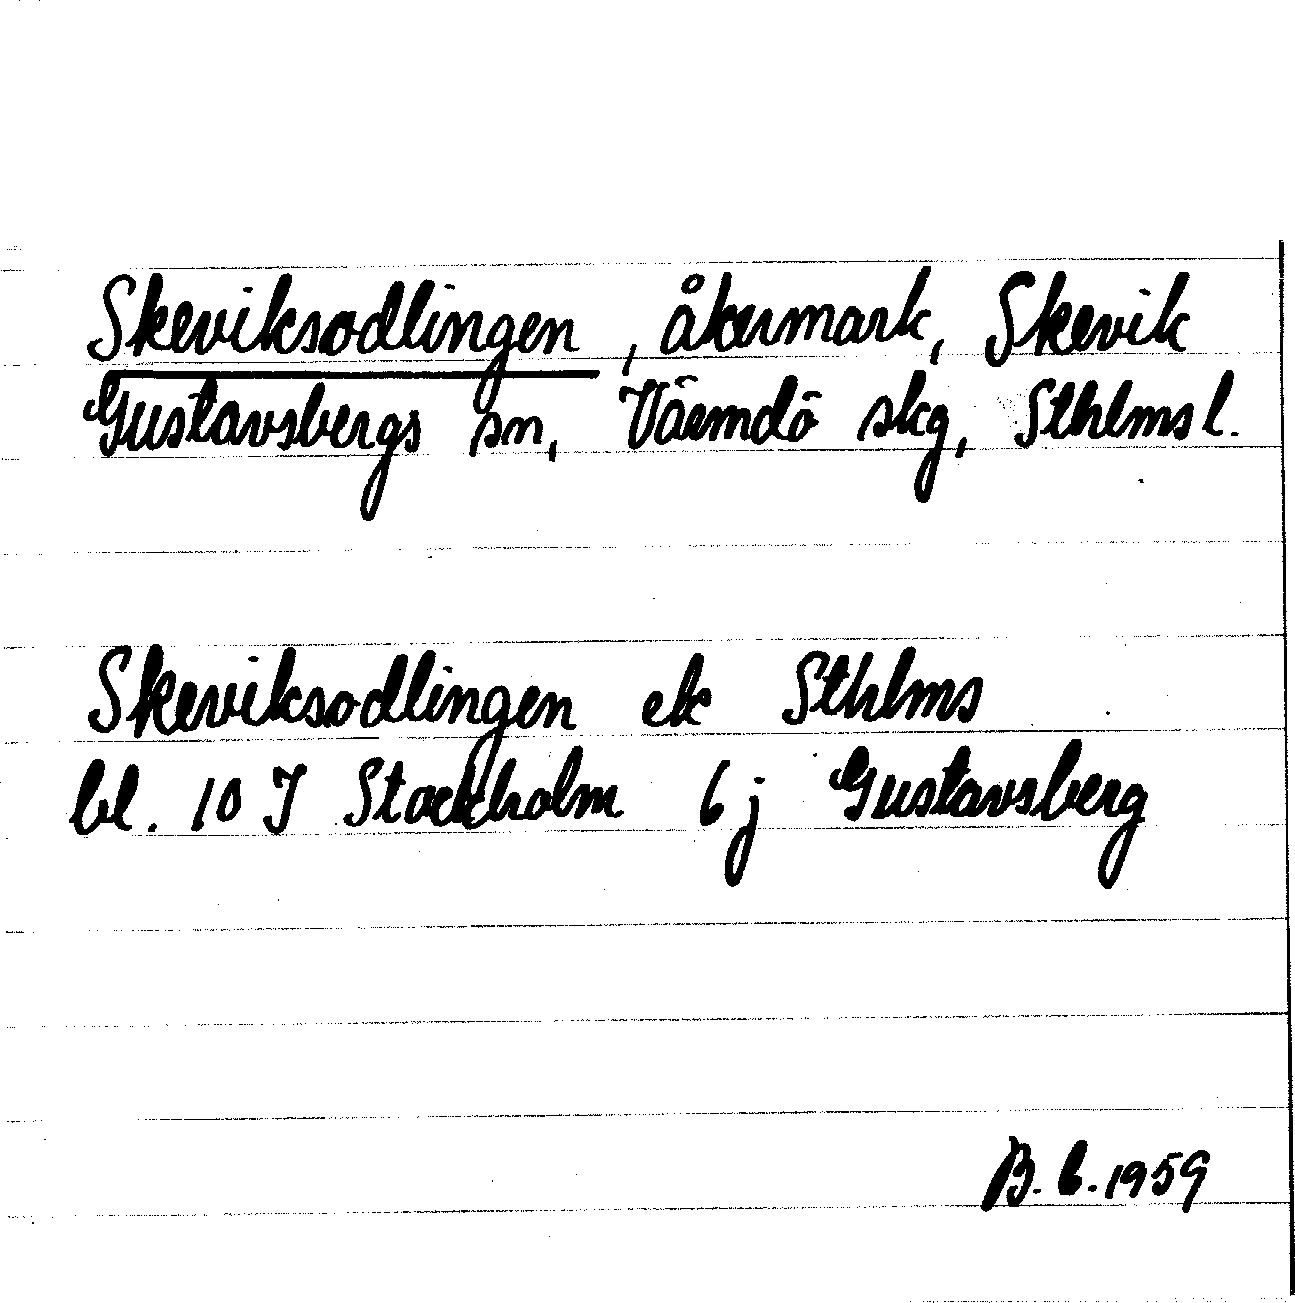 Skeviksodlingen, åkermark, Skevik
Gustavsbergs sn, Värmdö skg, Sthlms l.
Skeviksodlingen ek Sthlms
bl. 10 J Stockholm 6 j Gustavsberg
B. L. 1959